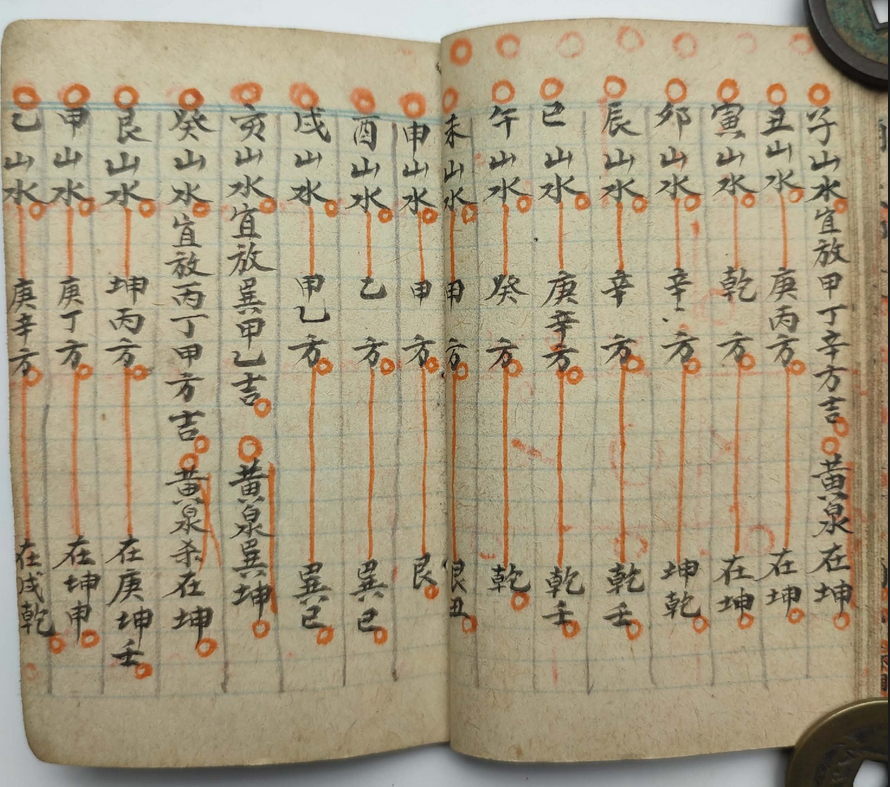 子山水宜放甲丁辛方吉 黃泉在坤
丑山水 庚丙方 在坤
寅山水 乾方 在坤
卯山水 辛方 坤乾
辰山水 辛方 乾壬
巳山水 庚辛方 乾壬
午山水 癸方 乾
未山水 甲方 艮丑
申山水 申方 艮
酉山水 乙方 巽巳
戌山水 甲乙方 巽巳
亥山水宜放巽甲乙吉 黃泉巽坤
癸山水宜放丙丁甲方吉 黃泉杀在坤
艮山水 坤丙方 在庚坤壬
甲山水 庚丁方 在坤申
乙山水 庚辛方 在戌乾